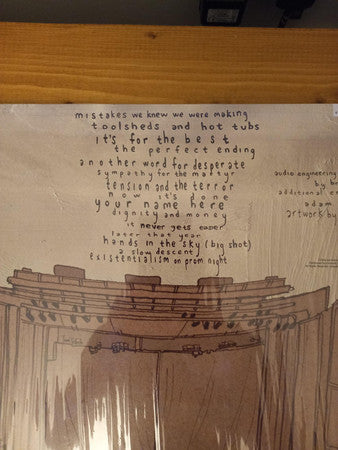 mistakes we knew we were making
toolsheds and hot tubs
it's for the best
the perfect ending
another word for desperate
sympathy for the martyr
tension and the terror
now it's done
your name here
dignity and money
it never gets easier
later that year
hands in the sky (big shot)
a slow descent
existentialism on prom night
audio engineering
by b
additional e
adam
artwork by